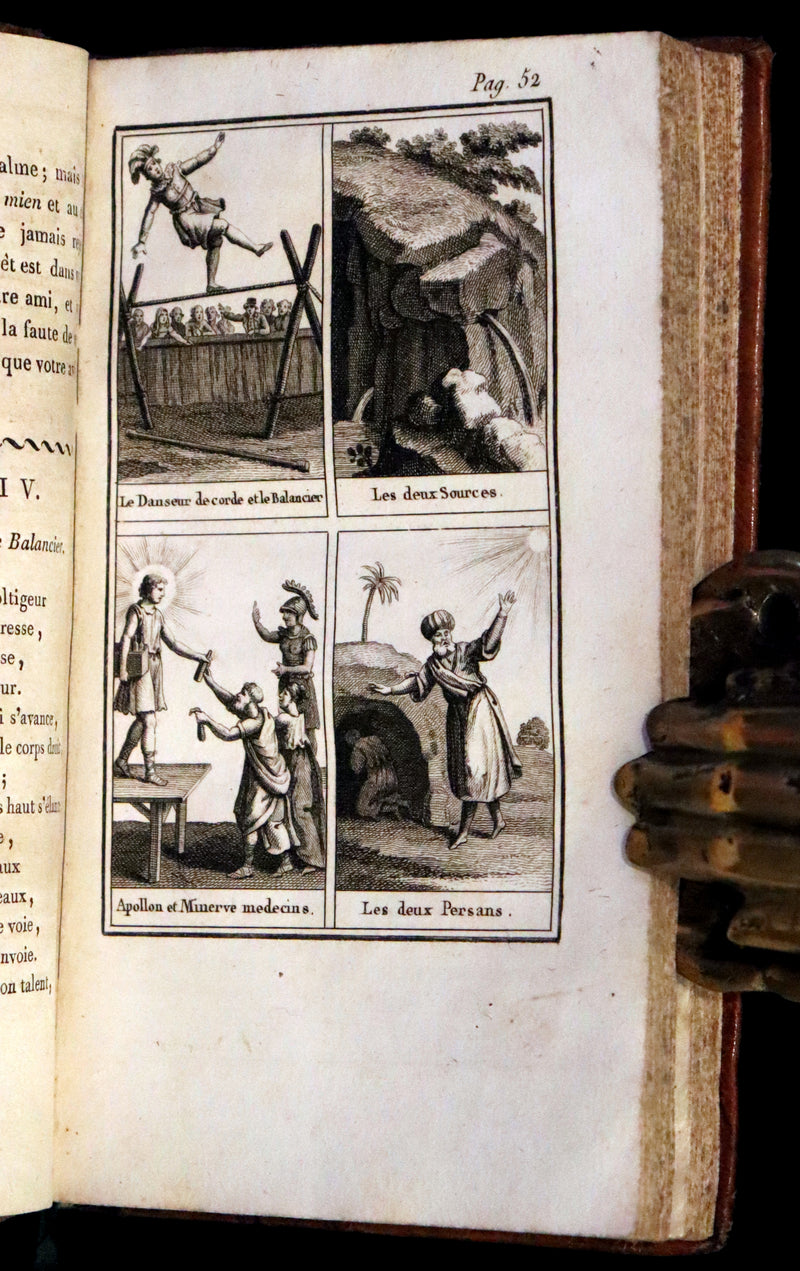 alme; mais
mien et au
jamais
êt est dans
re ami, et
la faute de
que votre
I V.
Balancier.
ltigeur
resse,
se,
ur.
i s'avance,
le corps droit
;
s haut s'élan
e,
aux
eaux,
e voie,
nvoie.
on talent,
Pag. 52
Le Danseur de corde et le Balancier
Les deux Sources.
Apollon et Minerve medecins.
Les deux Persans.